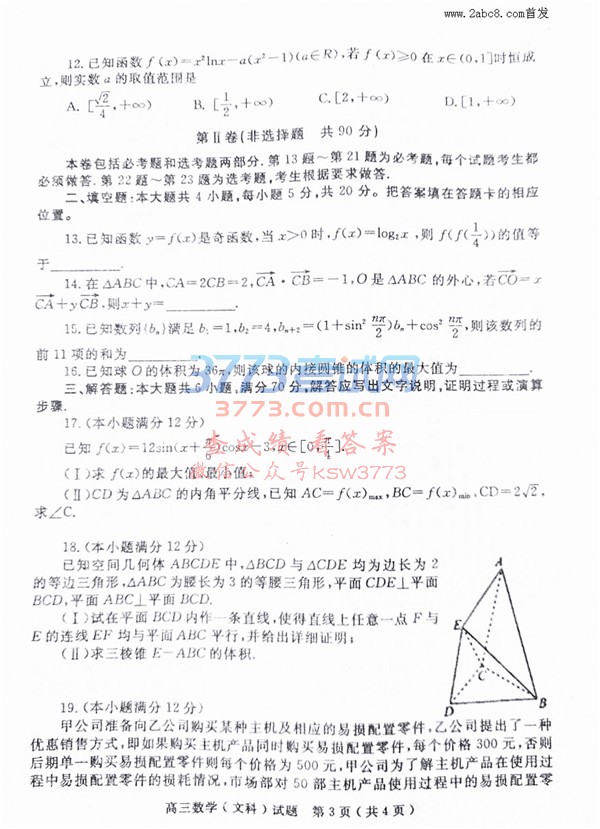 www.2abc8.com首发
12.已知函数 f(x)=x²lnx-a(x²-1)(a∈R),若 f(x)≥0 在 x∈(0,1]时恒成
立,则实数 a 的取值范围是
A. [√2/4,+∞) B. [1/2,+∞) C. [2,+∞) D. [1,+∞)
第Ⅱ卷(非选择题 共 90 分)
本卷包括必考题和选考题两部分.第 13 题~第 21 题为必考题,每个试题考生都
必须做答.第 22 题~第 23 题为选考题,考生根据要求做答.
二、填空题:本大题共 4 小题,每小题 5 分,共 20 分。把答案填在答题卡的相应
位置。
13.已知函数 y=f(x)是奇函数,当 x>0 时,f(x)=log₂x ,则 f(f(1/4))的值等
于________.
14.在 △ABC 中,CA=2CB=2,CA·CB=-1,O 是 △ABC 的外心,若CO=x
CA+yCB,则x+y=________.
15.已知数列{bₙ}满足 b₁=1,b₂=4,bₙ₊₂=(1+sin² nπ/2)bₙ+cos² nπ/2,则该数列的
前 11 项的和为________.
16.已知球 O 的体积为 36π,则该球的内接圆锥的体积的最大值为________.
三、解答题:本大题共 6 小题,满分 70 分,解答应写出文字说明,证明过程或演算
步骤.
3773考试网
3773.com.cn
查成绩 看答案
微信公众号ksw3773
17.(本小题满分 12 分)
已知 f(x)=12sin(x+π/6)cosx-3,x∈[0,π/4].
(Ⅰ)求 f(x)的最大值、最小值;
(Ⅱ)CD 为 △ABC 的内角平分线,已知 AC=f(x)max,BC=f(x)min,CD=2√2,
求∠C.
18.(本小题满分 12 分)
已知空间几何体 ABCDE 中,△BCD 与 △CDE 均为边长为 2
的等边三角形,△ABC 为腰长为 3 的等腰三角形,平面 CDE⊥平面
BCD,平面 ABC⊥平面 BCD.
(Ⅰ)试在平面 BCD 内作一条直线,使得直线上任意一点 F 与
E 的连线 EF 均与平面 ABC 平行,并给出详细证明;
(Ⅱ)求三棱锥 E-ABC 的体积.
A
E
C
D
B
19.(本小题满分 12 分)
甲公司准备向乙公司购买某种主机及相应的易损配置零件,乙公司提出了一种
优惠销售方式,即如果购买主机产品同时购买易损配置零件,每个价格 300 元,否则
后期单一购买易损配置零件则每个价格为 500 元,甲公司为了解主机产品在使用过
程中易损配置零件的损耗情况,市场部对 50 部主机产品使用过程中的易损配置零
高三数学(文科)试题 第 3 页(共 4 页)